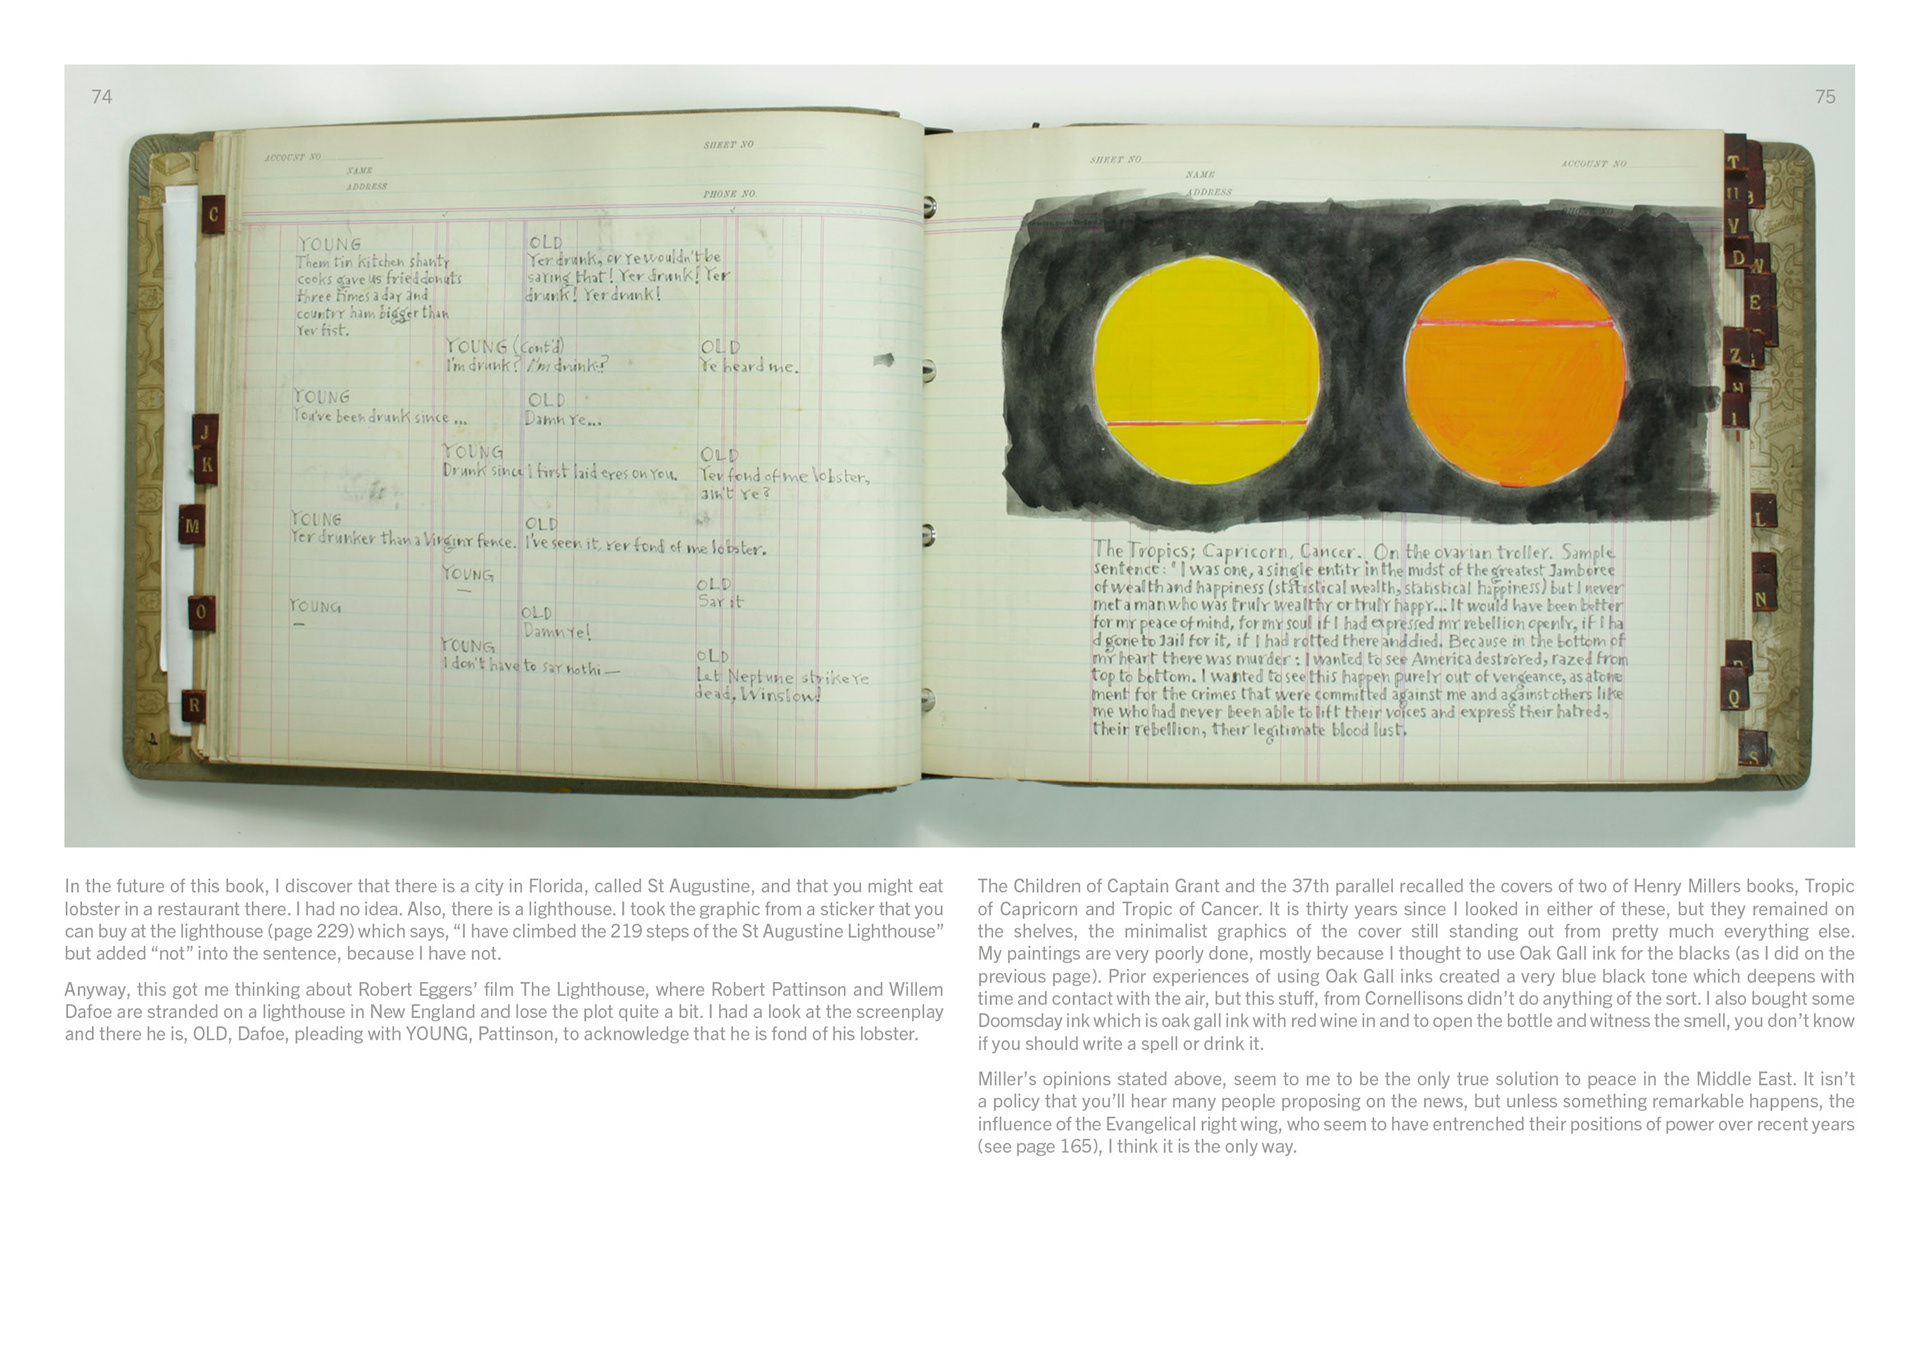 74
75
ACCOUNT NO
SHEET NO
NAME
ADDRESS
PHONE NO.
C
J
K
M
O
R
YOUNG
Them tin kitchen shanty
cooks gave us fried donuts
three times a day and
country ham bigger than
Yer fist.
OLD
Yer drunk, or ye wouldn't be
saying that! Yer drunk! Yer
drunk! Yer drunk!
YOUNG (Cont'd)
I'm drunk? I'm drunk?
OLD
Ye heard me.
YOUNG
You've been drunk since ...
OLD
Damn Ye...
YOUNG
Drunk since I first laid eyes on You.
OLD
Yer fond of me lobster,
ain't Ye?
YOUNG
Yer drunker than a Virginy fence.
OLD
I've seen it, yer fond of me lobster.
YOUNG
—
OLD
Say it
YOUNG
—
OLD
Damn ye!
YOUNG
I don't have to say nothi —
OLD
Let Neptune strike Ye
dead, Winslow!
SHEET NO
ACCOUNT NO
NAME
ADDRESS
T
U
V
D
W
E
Z
H
I
L
N
Q
S
The Tropics; Capricorn, Cancer. On the ovarian troller. Sample
sentence: 'I was one, a single entity in the midst of the greatest Jamboree
of wealth and happiness (statistical wealth, statistical happiness) but I never
met a man who was truly wealthy or truly happy... It would have been better
for my peace of mind, for my soul if I had expressed my rebellion openly, if I ha
d gone to Jail for it, if I had rotted there and died. Because in the bottom of
my heart there was murder: I wanted to see America destroyed, razed from
top to bottom. I wanted to see this happen purely out of vengeance, as atone
ment for the crimes that were committed against me and against others like
me who had never been able to lift their voices and express their hatred,
their rebellion, their legitimate blood lust.
In the future of this book, I discover that there is a city in Florida, called St Augustine, and that you might eat
lobster in a restaurant there. I had no idea. Also, there is a lighthouse. I took the graphic from a sticker that you
can buy at the lighthouse (page 229) which says, “I have climbed the 219 steps of the St Augustine Lighthouse”
but added “not” into the sentence, because I have not.
Anyway, this got me thinking about Robert Eggers’ film The Lighthouse, where Robert Pattinson and Willem
Dafoe are stranded on a lighthouse in New England and lose the plot quite a bit. I had a look at the screenplay
and there he is, OLD, Dafoe, pleading with YOUNG, Pattinson, to acknowledge that he is fond of his lobster.
The Children of Captain Grant and the 37th parallel recalled the covers of two of Henry Millers books, Tropic
of Capricorn and Tropic of Cancer. It is thirty years since I looked in either of these, but they remained on
the shelves, the minimalist graphics of the cover still standing out from pretty much everything else.
My paintings are very poorly done, mostly because I thought to use Oak Gall ink for the blacks (as I did on the
previous page). Prior experiences of using Oak Gall inks created a very blue black tone which deepens with
time and contact with the air, but this stuff, from Cornellisons didn’t do anything of the sort. I also bought some
Doomsday ink which is oak gall ink with red wine in and to open the bottle and witness the smell, you don’t know
if you should write a spell or drink it.
Miller’s opinions stated above, seem to me to be the only true solution to peace in the Middle East. It isn’t
a policy that you’ll hear many people proposing on the news, but unless something remarkable happens, the
influence of the Evangelical right wing, who seem to have entrenched their positions of power over recent years
(see page 165), I think it is the only way.